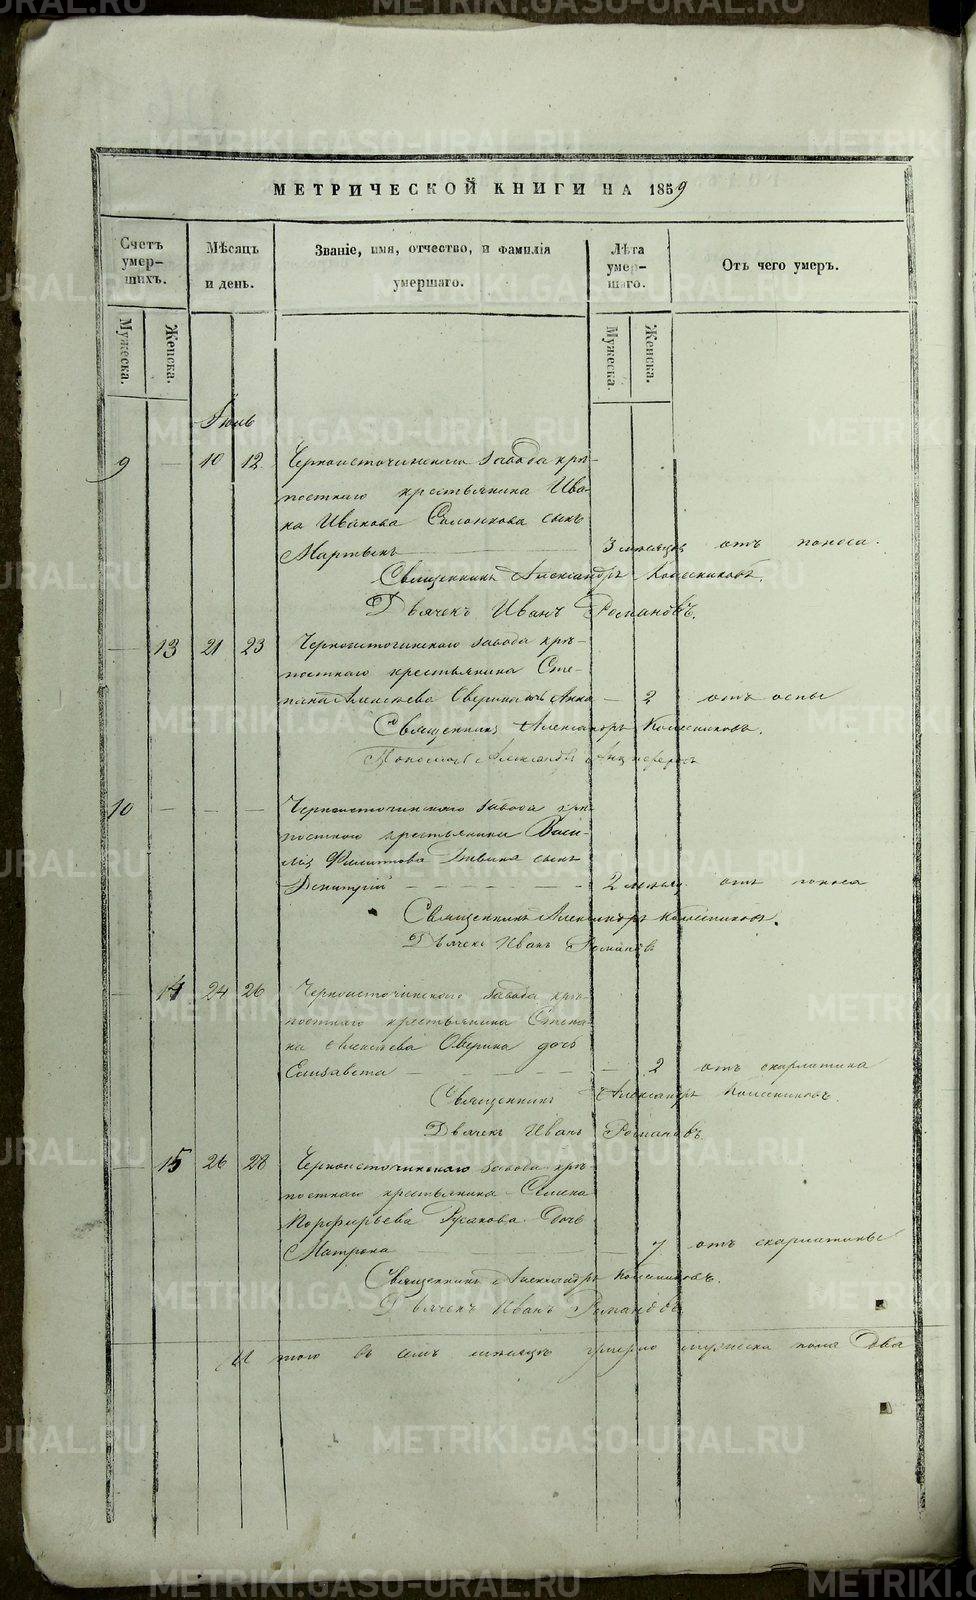 МЕТРИЧЕСКОЙ КНИГИ НА 1859
Счетъ умер-шихъ.
Мѣсяцъ и день.
Званіе, имя, отчество, и фамилія умершаго.
Лѣта умер-шаго.
Отъ чего умеръ.
Мужеска.
Женска.
Мужеска.
Женска.
Іюль
9 — 10 12 Черноисточинскаго завода крѣ-
постнаго крестьянина Ива-
на Иванова Солонкова сынъ
Мартынъ — 3 месяцъ отъ поноса.
Священникъ Александръ Колесниковъ.
Дьячекъ Иванъ Романовъ.
— 13 21 23 Черноисточинскаго завода крѣ-
постнаго крестьянина Сте-
пана Алексѣева Оверина дочь Анна — 2 отъ оспы
Священникъ Александръ Колесниковъ.
Пономарь Александръ
10 — — — Черноисточинскаго завода крѣ-
постнаго крестьянина Васи-
лія Филиппова сынъ
Димитрій — 2 месяц. отъ поноса
Священникъ Александръ Колесниковъ.
Дьячекъ Иванъ Романовъ
— 14 24 26 Черноисточинскаго завода крѣ-
постнаго крестьянина Степа-
на Алексѣева Оверина дочь
Елизавета — — 2 отъ скарлатина
Священникъ Александръ Колесниковъ.
Дьячекъ Иванъ Романовъ.
— 15 26 28 Черноисточинскаго завода крѣ-
постнаго крестьянина Семена
Порфирьева Русакова дочь
Матрона — 7 отъ скарлатины
Священникъ Александръ Колесниковъ.
Дьячекъ Иванъ Романовъ
И того въ семъ месяцѣ умерло мужеска пола два
METRIKI.GASO-URAL.RU